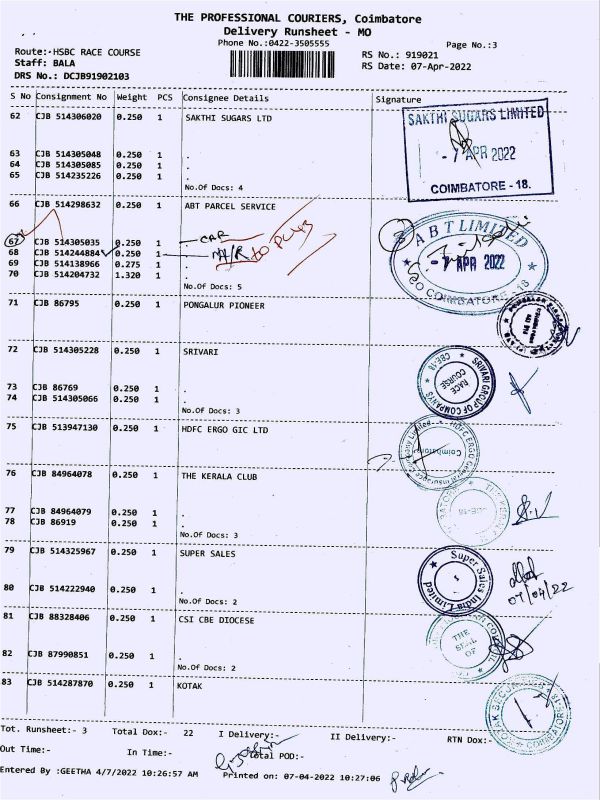 THE PROFESSIONAL COURIERS, Coimbatore
Delivery Runsheet - MO
Phone No.:0422-3505555
Page No.:3
Route:-HSBC RACE COURSE
RS No.: 919021
Staff: BALA
RS Date: 07-Apr-2022
DRS No.: DCJB91902103
S No Consignment No Weight PCS Consignee Details Signature
62 CJB 514306020 0.250 1 SAKTHI SUGARS LTD
SAKTHI SUGARS LIMITED
-7 APR 2022
COIMBATORE - 18.
63 CJB 514305048 0.250 1 .
64 CJB 514305085 0.250 1 .
65 CJB 514235226 0.250 1 .
No.Of Docs: 4
66 CJB 514298632 0.250 1 ABT PARCEL SERVICE
67 CJB 514305035 0.250 1 - CAR
68 CJB 514244884 0.250 1 - M/R to
69 CJB 514138966 0.275 1 .
70 CJB 514204732 1.320 1 .
No.Of Docs: 5
A B T LIMITED
-7 APR 2022
COIMBATORE - 18
71 CJB 86795 0.250 1 PONGALUR PIONEER
72 CJB 514305228 0.250 1 SRIVARI
SRIVARI GROUP OF COMPANYS
RACE COURSE
CBE-18
73 CJB 86769 0.250 1 .
74 CJB 514305066 0.250 1 .
No.Of Docs: 3
75 CJB 513947130 0.250 1 HDFC ERGO GIC LTD
HDFC ERGO General Insurance Company Limited
Coimbatore
76 CJB 84964078 0.250 1 THE KERALA CLUB
77 CJB 84964079 0.250 1 .
78 CJB 86919 0.250 1 .
No.Of Docs: 3
79 CJB 514325967 0.250 1 SUPER SALES
Super Sales India Limited
07/04/22
80 CJB 514222940 0.250 1 .
No.Of Docs: 2
81 CJB 88328406 0.250 1 CSI CBE DIOCESE
THE SEAL OF
82 CJB 87990851 0.250 1 .
No.Of Docs: 2
83 CJB 514287870 0.250 1 KOTAK
Tot. Runsheet:- 3 Total Dox:- 22 I Delivery:- II Delivery:- RTN Dox:-
Out Time:- In Time:- Total POD:-
Entered By :GEETHA 4/7/2022 10:26:57 AM Printed on: 07-04-2022 10:27:06